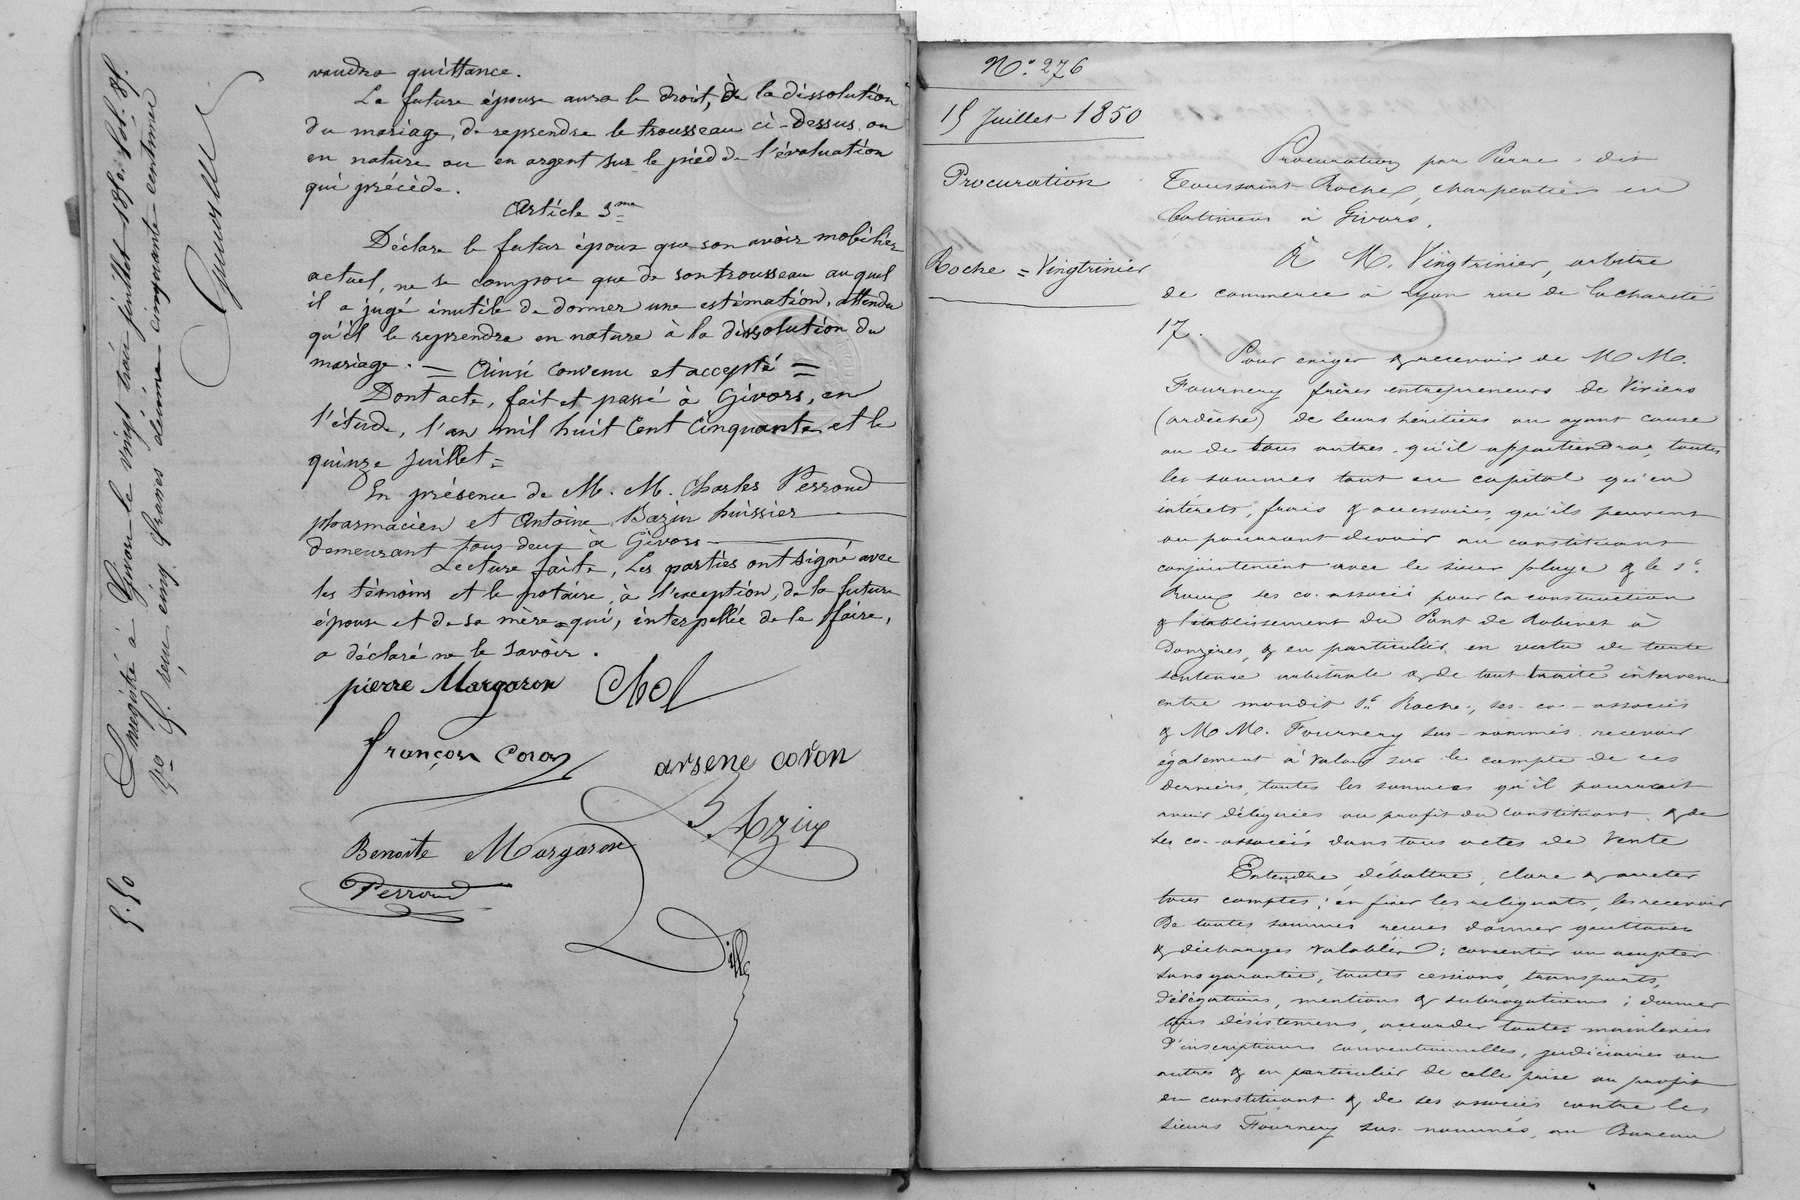 vaudra quittance.
La future épouse aura le droit, à la dissolution
du mariage, de reprendre le trousseau ci-dessus ou
en nature ou en argent sur le pied de l'évaluation
qui précède.
Article 3me
Déclare le futur époux que son avoir mobilier
actuel, ne se compose que de son trousseau auquel
il a jugé inutile de donner une estimation, attendu
qu'il le reprendra en nature à la dissolution du
mariage. = Ainsi convenu et accepté =
Dont acte, fait et passé à Givors, en
l'étude, l'an mil huit cent cinquante et le
quinze juillet =
En présence de M. M. Charles Perroud
pharmacien et Antoine Bazin huissier
demeurant tous deux à Givors
Lecture faite, les parties ont signé avec
les témoins et le notaire, à l'exception, de la future
épouse et de sa mère qui, interpellée de le faire,
a déclaré ne le savoir.
pierre Margaron Chol
françois Coron
arsene coron
BAzin
Benoite Margaron
Perroud
Enregistré à Givors le vingt trois juillet 1850. fol. 88.
Vo C. 5, reçu cinq francs décime cinquante centimes
5.50
No. 276
15 Juillet 1850
Procuration
Roche = Vingtrinier
Procuration par Pierre dit
Toussaint Roche, charpentier en
batimens à Givors,
À M. Vingtrinier, arbitre
de commerce à Lyon rue de la charité
17.
Pour exiger & recevoir de M M.
Fournery frères entrepreneurs de Viviers
(ardèche) de leurs héritiers ou ayant cause
ou de tous autres qu'il appartiendra, toutes
les sommes tant en capital qu'en
intérêts, frais & accessoires, qu'ils peuvent
ou pourront devoir au constituant
conjointement avec le sieur pluye & le Sr.
Roux ses co-associés pour la construction
& l'établissement du Pont de Robinet à
Donzères, & en particulier en vertu de toute
sentence arbitrale & de tout traité intervenu
entre mondit Sr. Roche, ses co-associés
& M M. Fournery sus-nommés recevoir
également à valoir sur le compte de ces
derniers, toutes les sommes qu'il pourrait
avoir déléguées au profit du constituant & de
ses co-associés dans tous actes de Vente
Entendre, débattre, clore & arreter
tous comptes; en fixer les reliquats, les recevoir
De toutes sommes reçues donner quittances
& décharges valables; consentir ou accepter
sans garantie, toutes cessions, transports,
délégations, mentions & subrogations; donner
tous désistemens, accorder toutes mainlevées
d'inscriptions conventionnelles, judiciaires ou
autres & en particulier de celle prise au profit
du constituant & de ses associés contre les
sieurs Fournery sus-nommés, au Bureau